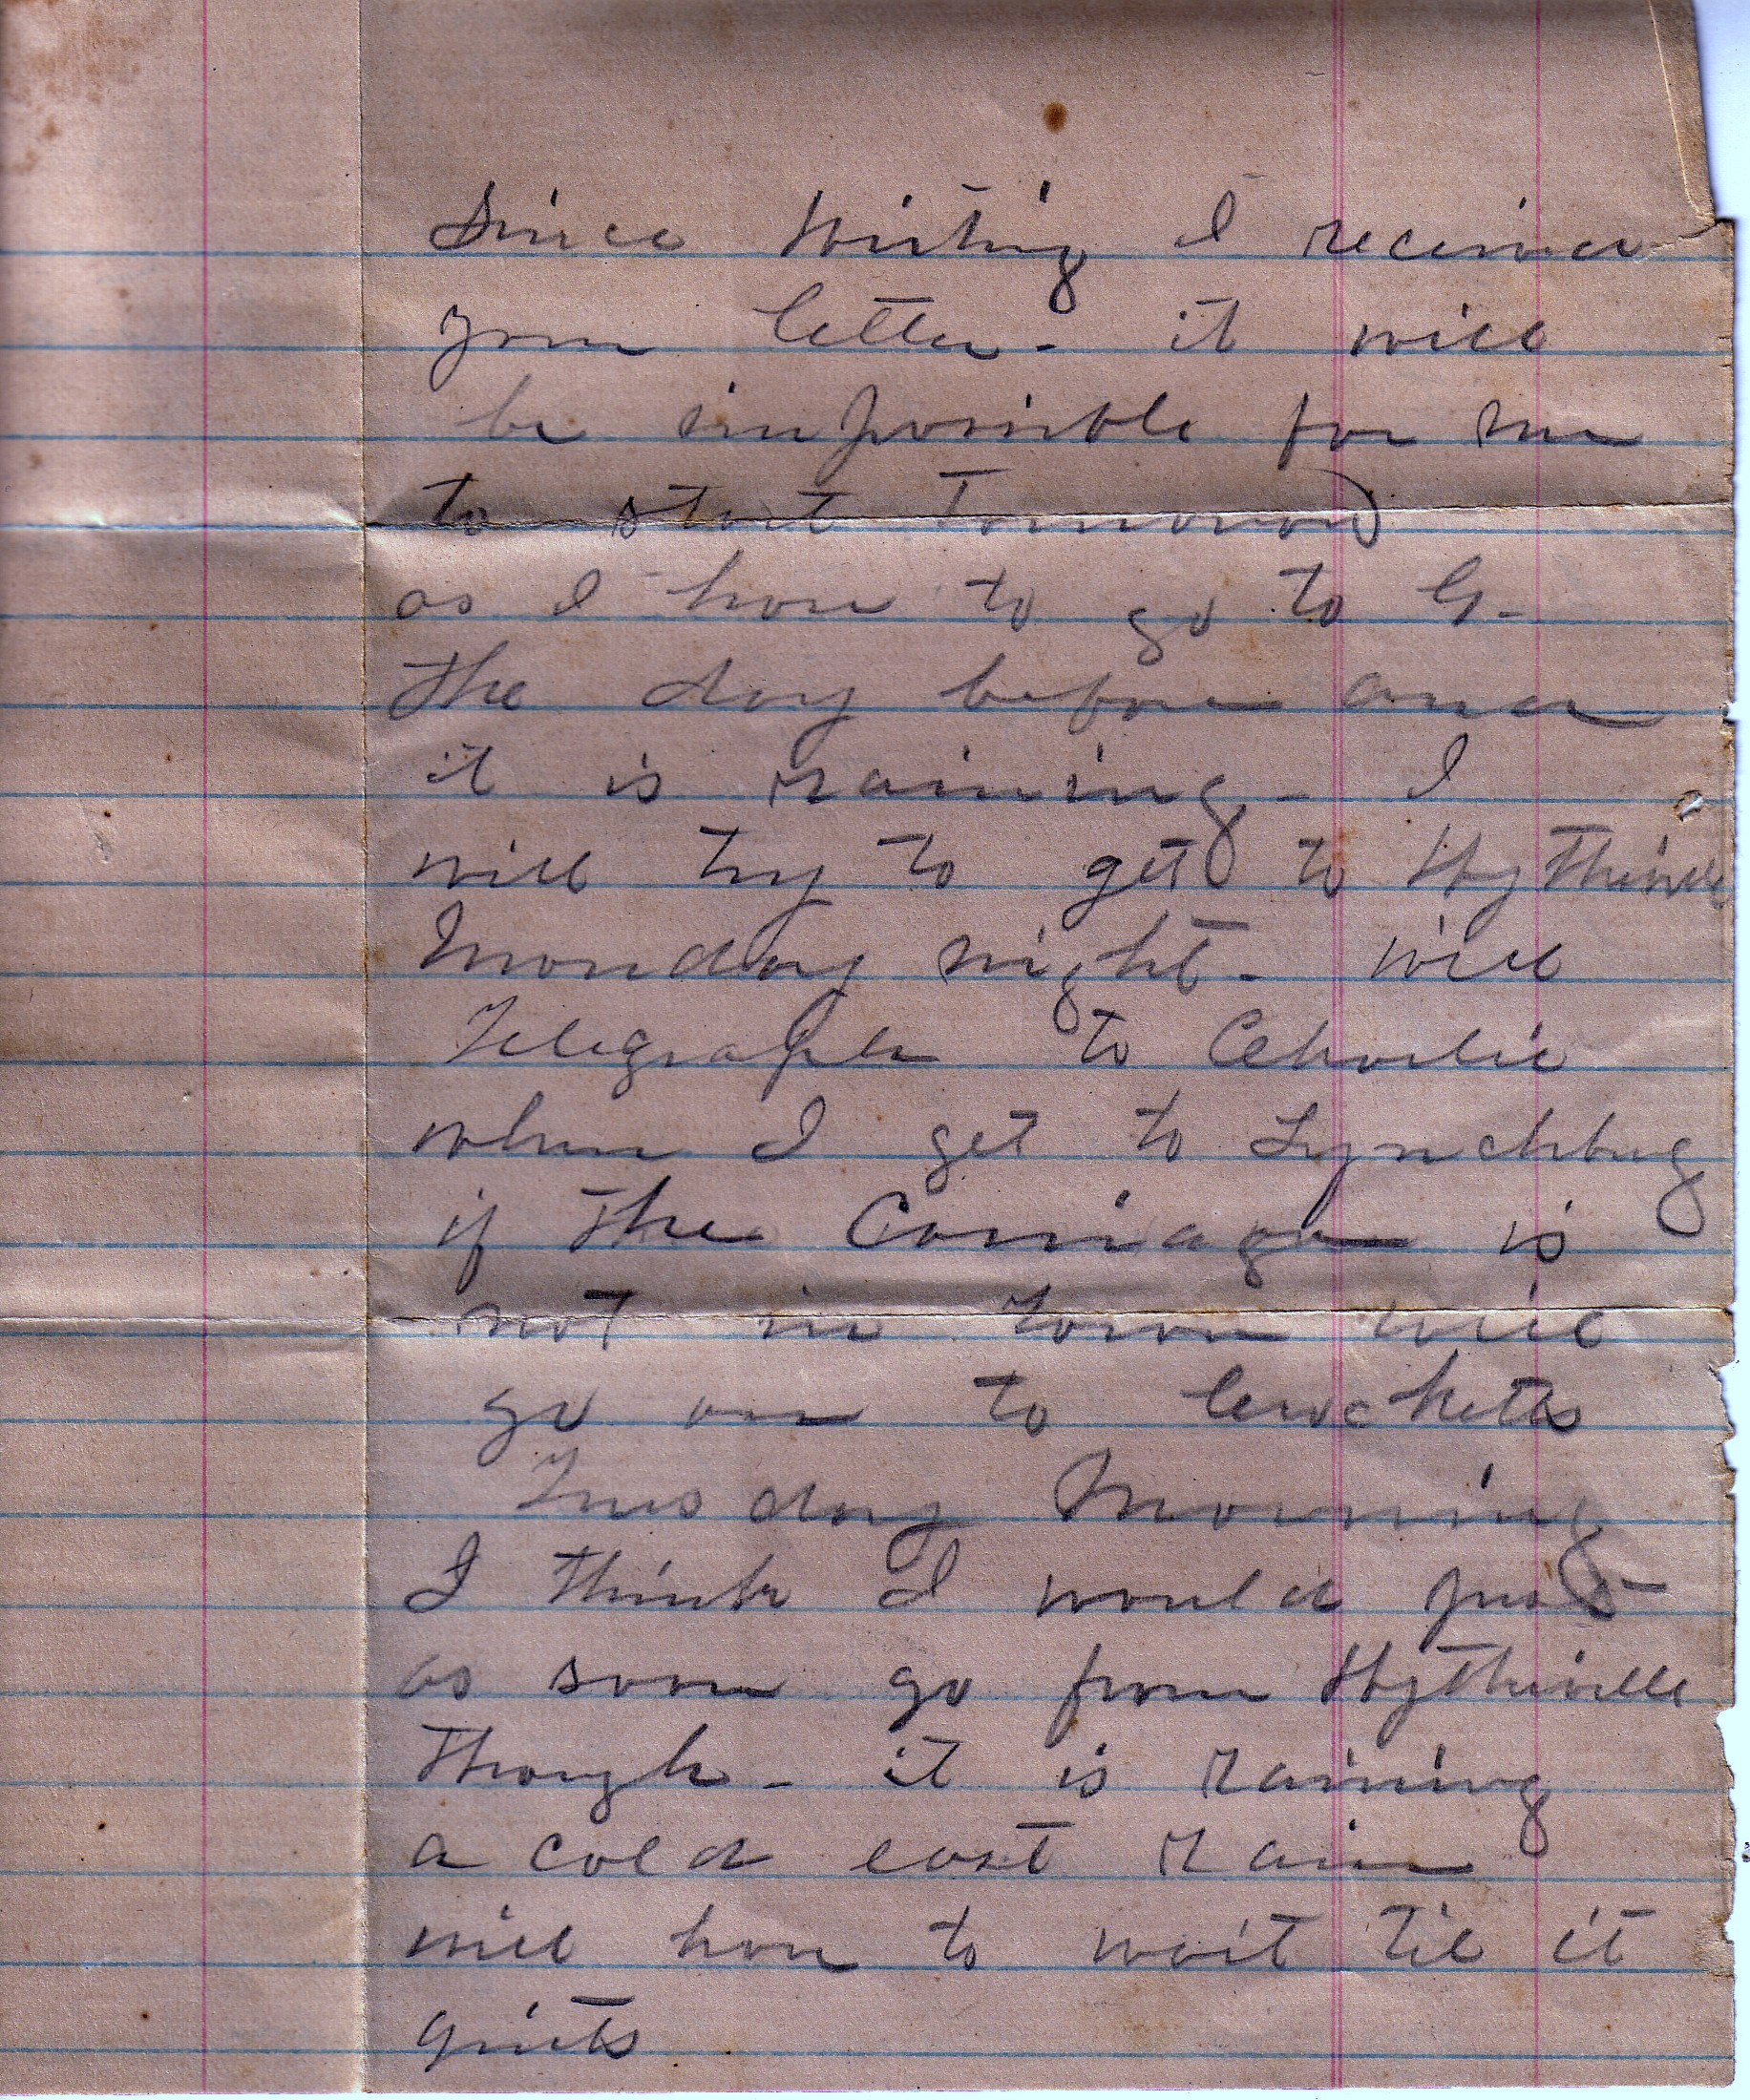 Since Writing I received
your letter - it will
be impossible for me
to start Tomorrow
as I have to go to G-
the day before and
it is raining - I
will try to get to Wytheville
Monday night - will
Telegraph to Charlie
when I get to Lynchburg
if the Carriage is
not in town will
go on to Crocketts
Tuesday Morning
I think I would just
as soon go from Wytheville
though - it is raining
a cold east rain
will have to wait til it
quits